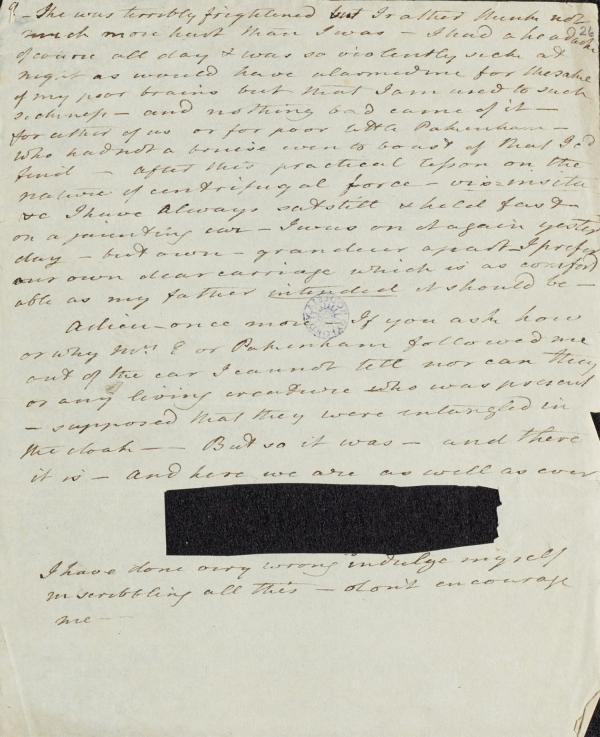 9. – She was terribly frightened but I rather think not 26
much more hurt than I was – I had a headache
of course all day & was so violently sick at
night as would have alarmed me for the sake
of my poor brains but that I am used to such
sickness – and nothing bad came of it –
for either of us or for poor little Pakenham –
who had not a bruise even to boast of that I cd
find – after this practical lesson on the
nature of centrifugal force – vis-insita
&c I have always sat still & held fast
on a jaunting car – I was on it again yester
day – but own – grandeur apart I prefer
our own dear carriage which is as comfort
able as my father intended it should be –
Adieu – once more – If you ask how
or why Mrs E or Pakenham followed me
out of the car I cannot tell nor can they
or any living creature who was present
– supposed that they were intangled in
the cloak – But so it was – and there
it is – and here we are as well as ever
I have done very wrong indulge myself
in scribbling all this – don't encourage
me –